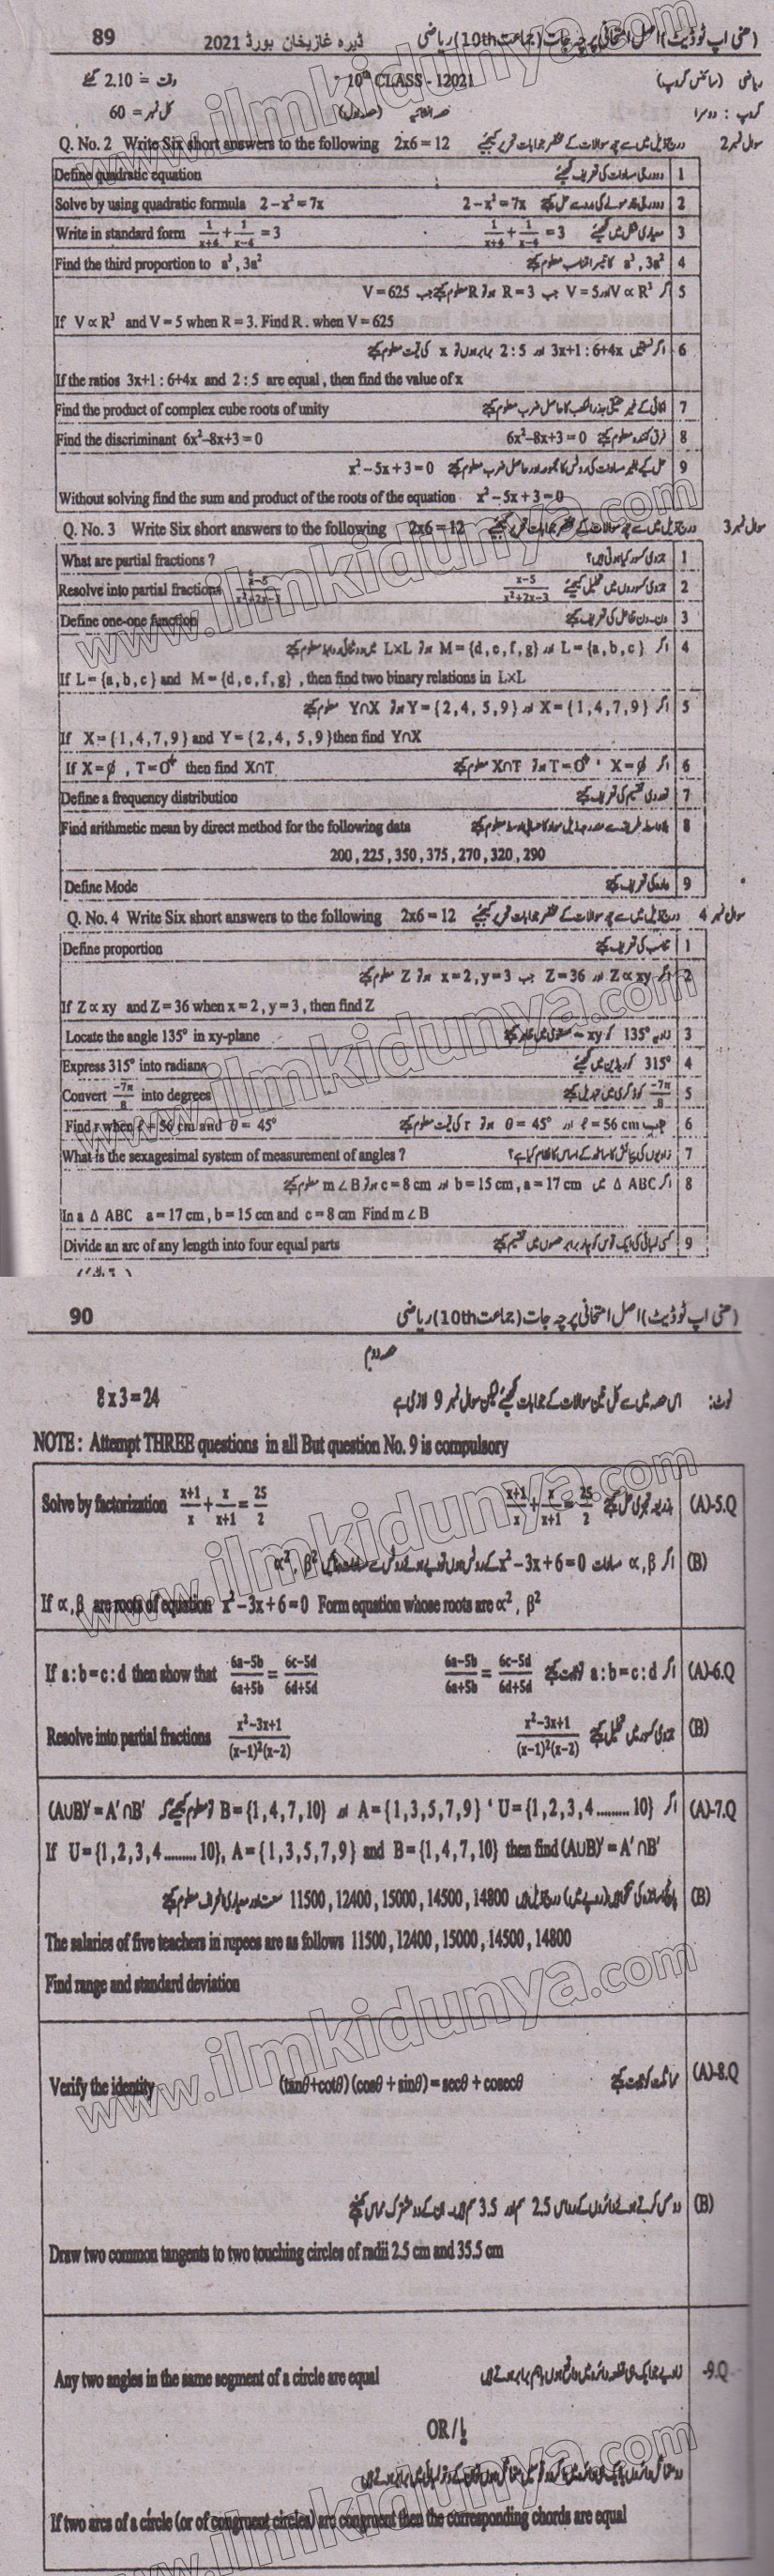 89 ڈیرہ غازیخان بورڈ 2021 (منی اپ ٹوڈیٹ) اصل امتحانی پرچہ جات (جماعت 10th) ریاضی
ریاضی (سائنس گروپ) 10th CLASS - 12021 وقت = 2.10 گھنٹے
گروپ : دوسرا حصہ انشائیہ (حصہ اول) کل نمبر = 60
Q. No. 2 Write Six short answers to the following 2x6 = 12 درج ذیل میں سے چھ سوالات کے مختصر جوابات تحریر کیجئے سوال نمبر 2
Define quadratic equation دو درجی مساوات کی تعریف کیجئے 1
Solve by using quadratic formula 2 – x² = 7x 2 – x² = 7x دو درجی فارمولے کی مدد سے حل کیجئے 2
Write in standard form 1/x+4 + 1/x–4 = 3 1/x+4 + 1/x–4 = 3 معیاری شکل میں لکھیئے 3
Find the third proportion to a³ , 3a² a³ , 3a² کا تیسرا تناسب معلوم کیجئے 4
اگر V ∝ R³ اور V = 5 جب R = 3 ہو تو R معلوم کیجئے جب V = 625 5
If V ∝ R³ and V = 5 when R = 3. Find R . when V = 625
اگر نسبتیں 3x+1 : 6+4x اور 2 : 5 برابر ہوں تو x کی قیمت معلوم کیجئے 6
If the ratios 3x+1 : 6+4x and 2 : 5 are equal , then find the value of x
Find the product of complex cube roots of unity اکائی کے غیر حقیقی جذرالمکعب کا حاصل ضرب معلوم کیجئے 7
Find the discriminant 6x²–8x+3 = 0 6x²–8x+3 = 0 فرق کنندہ معلوم کیجئے 8
حل کیے بغیر مساوات کی روٹس کا مجموعہ اور حاصل ضرب معلوم کیجئے x² – 5x + 3 = 0 9
Without solving find the sum and product of the roots of the equation x² – 5x + 3 = 0
Q. No. 3 Write Six short answers to the following 2x6 = 12 درج ذیل میں سے چھ سوالات کے مختصر جوابات تحریر کیجئے سوال نمبر 3
What are partial fractions ? جزوی کسور کیا ہوتی ہیں؟ 1
Resolve into partial fractions x–5/x²+2x–3 x–5/x²+2x–3 جزوی کسروں میں تحلیل کیجئے 2
Define one-one function ون-ون تفاعل کی تعریف کیجئے 3
اگر L = {a , b , c } اور M = {d , e , f , g} ہو تو L×L میں دو ثنائی روابط معلوم کیجئے 4
If L = {a , b , c } and M = {d , e , f , g} , then find two binary relations in L×L
اگر X = { 1 , 4 , 7 , 9 } اور Y = { 2 , 4 , 5 , 9 } ہو تو Y∩X معلوم کیجئے 5
If X = { 1 , 4 , 7 , 9 } and Y = { 2 , 4 , 5 , 9 }then find Y∩X
If X = ø , T = O⁺ then find X∩T اگر X = ø ، T = O⁺ ہو تو X∩T معلوم کیجئے 6
Define a frequency distribution تعددی تقسیم کی تعریف کیجئے 7
Find arithmetic mean by direct method for the following data بلاواسطہ طریقہ سے مندرجہ ذیل مواد کا حسابی اوسط معلوم کیجئے 8
200 , 225 , 350 , 375 , 270 , 320 , 290
Define Mode عادہ کی تعریف کیجئے 9
Q. No. 4 Write Six short answers to the following 2x6 = 12 درج ذیل میں سے چھ سوالات کے مختصر جوابات تحریر کیجئے سوال نمبر 4
Define proportion تناسب کی تعریف کیجئے 1
اگر Z ∝ xy اور Z = 36 جب x = 2 , y = 3 ہو تو Z معلوم کیجئے 2
If Z ∝ xy and Z = 36 when x = 2 , y = 3 , then find Z
Locate the angle 135° in xy-plane زاویہ 135° کو xy – مستوی میں ظاہر کیجئے 3
Express 315° into radians 315° کو ریڈین میں لکھیئے 4
Convert –7π/8 into degrees –7π/8 کو ڈگری میں تبدیل کیجئے 5
Find r when ℓ = 56 cm and θ = 45° جب ℓ = 56 cm اور θ = 45° ہو تو r کی قیمت معلوم کیجئے 6
What is the sexagesimal system of measurement of angles ? زاویوں کی پیمائش کا ساٹھ کے اساس کا نظام کیا ہے؟ 7
اگر Δ ABC میں b = 15 cm , a = 17 cm اور c = 8 cm ہو تو m∠B معلوم کیجئے 8
In a Δ ABC a = 17 cm , b = 15 cm and c = 8 cm Find m ∠ B
Divide an arc of any length into four equal parts کسی لمبائی کی ایک قوس کو چار برابر حصوں میں تقسیم کیجئے 9
90 (منی اپ ٹوڈیٹ) اصل امتحانی پرچہ جات (جماعت 10th) ریاضی
حصہ دوم
8 x 3 = 24 نوٹ: اس حصہ میں سے کل تین سوالات کے جوابات لکھیئے لیکن سوال نمبر 9 لازمی ہے
NOTE : Attempt THREE questions in all But question No. 9 is compulsory
Solve by factorization x+1/x + x/x+1 = 25/2 x+1/x + x/x+1 = 25/2 بذریعہ تجزی حل کیجئے (A)-5.Q
اگر α , β مساوات x² – 3x + 6 = 0 کے روٹس ہوں تو α² , β² (B)
If α , β are roots of equation x² – 3x + 6 = 0 Form equation whose roots are α² , β²
If a : b = c : d then show that 6a–5b/6a+5b = 6c–5d/6d+5d 6a–5b/6a+5b = 6c–5d/6d+5d اگر a : b = c : d تو ثابت کیجئے (A)-6.Q
Resolve into partial fractions x²–3x+1/(x–1)²(x–2) x²–3x+1/(x–1)²(x–2) جزوی کسور میں تحلیل کیجئے (B)
اگر U = {1 , 2 , 3 , 4 ......... 10} ، A = { 1 , 3 , 5 , 7 , 9 } اور B = {1 , 4 , 7 , 10} تو معلوم کیجئے کہ (A∪B)' = A' ∩B' (A)-7.Q
If U = {1 , 2 , 3 , 4 ........ 10} , A = { 1 , 3 , 5 , 7 , 9 } and B = {1 , 4 , 7 , 10} then find (A∪B)' = A' ∩B'
پانچ اساتذہ کی تنخواہیں (روپے میں) درج ذیل ہیں 11500 , 12400 , 15000 , 14500 , 14800 سعت اور معیاری انحراف معلوم کیجئے (B)
The salaries of five teachers in rupees are as follows 11500 , 12400 , 15000 , 14500 , 14800
Find range and standard deviation
Verify the identity (tanθ+cotθ) (cosθ + sinθ) = secθ + cosecθ مماثلت کو ثابت کیجئے (A)-8.Q
دو مس کرتے ہوئے دائروں کے رداس 2.5 سم اور 3.5 سم ہیں۔ ان کے دو مشترک مماس کھینچئے (B)
Draw two common tangents to two touching circles of radii 2.5 cm and 35.5 cm
Any two angles in the same segment of a circle are equal زاویے جو ایک ہی قطعہ دائرہ میں واقع ہوں باہم برابر ہوتے ہیں -9.Q
OR / یا
If two arcs of a circle (or of congruent circles) are congruent then the corresponding chords are equal
www.ilmkidunya.com
www.ilmkidunya.com
www.ilmkidunya.com
www.ilmkidunya.com
www.ilmkidunya.com